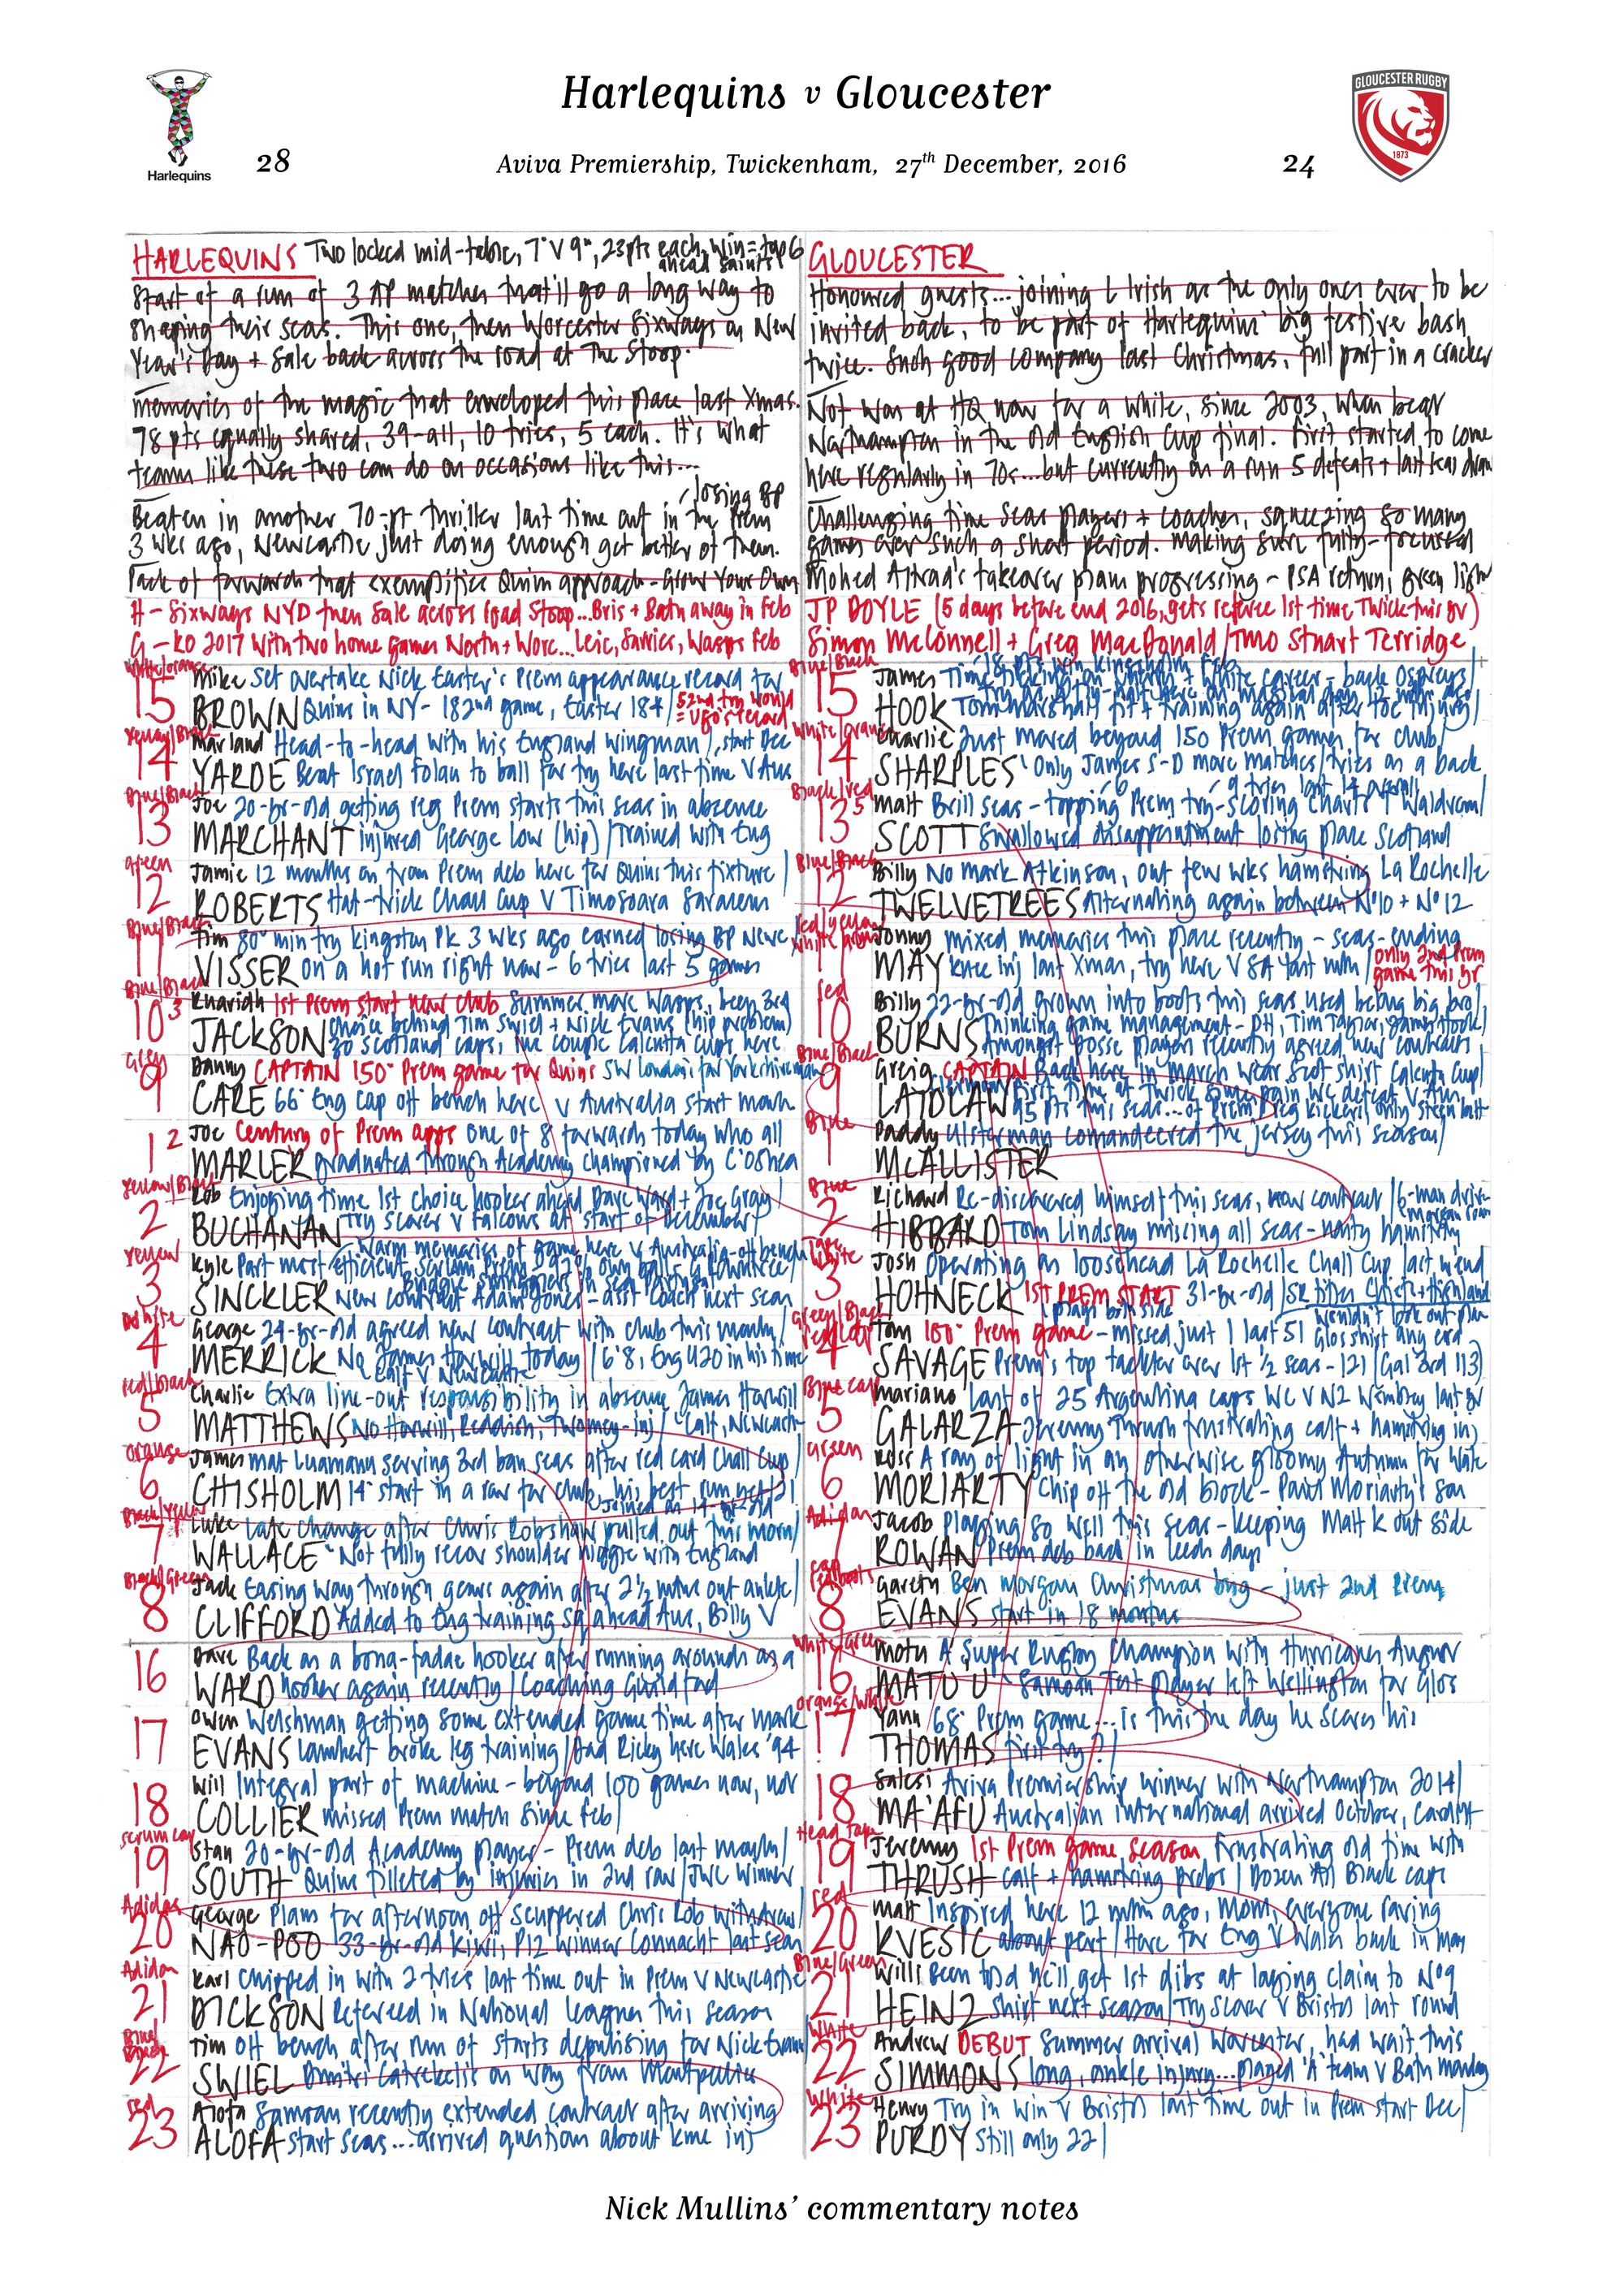 Harlequins v Gloucester
GLOUCESTER RUGBY
1873
Harlequins
28
Aviva Premiership, Twickenham, 27th December, 2016
24
HARLEQUINS Two locked mid-table, 7th v 9th, 23pts each, win = top 6
ahead Saints
Start of a run of 3 AP matches that'll go a long way to
shaping their seas. This one, then Worcester Sixways on New
Year's Day + Sale back across the road at The Stoop.
Memories of the magic that enveloped this place last Xmas.
78 pts equally shared. 39-all, 10 tries, 5 each. It's what
teams like these two can do on occasions like this...
losing BP
Beaten in another 70-pt thriller last time out in the Prem
3 wks ago, Newcastle just doing enough get better of them.
Pack of forwards that exemplifies Quins approach - Grow Your Own
H - Sixways NYD then Sale across road Stoop...Bris + Bath away in Feb
G - KO 2017 with two home games North + Worc...Leic, Sarries, Wasps Feb
GLOUCESTER
Honoured guests... joining L Irish as the only ones ever to be
invited back, to be part of Harlequins' big festive bash
twice. Such good company last Christmas, full part in a cracker
Not won at HQ now for a while, since 2003, when beat
Northampton in the old English Cup final. First started to come
here regularly in 70s...but currently on a run 5 defeats + last seas draw
Challenging time seas players + coaches, squeezing so many
games over such a short period. Making sure fully-focussed
Mohed Altrad's takeover plans progressing - PSA return, green light
JP DOYLE (5 days before end 2016, gets referee 1st time Twick this yr)
Simon McConnell + Greg MacDonald/TMO Stuart Terridge
White/orange
15 Mike Set overtake Nick Easter's Prem appearance record for
BROWN Quins in NY - 182nd game, Easter 184/ 52nd try would
= Ugo's record
Yellow/Black
14 Marland Head-to-head with his England wingman/, start Dec
YARDE Beat Israel Folau to ball for try here last time v Aus
Blue/Black
13 Joe 20-yr-old getting reg Prem starts this seas in absence
MARCHANT injured George Low (hip)/Trained with Eng
Green
12 Jamie 12 months on from Prem deb here for Quins this fixture/
ROBERTS Hat-trick Chall Cup v Timosoara Saracens
Blue/Black
11 Tim 80th min try Kingston Pk 3 wks ago earned losing BP Newc/
VISSER on a hot run right now - 6 tries last 5 games
Blue/Black
10 3 Ruaridh 1st Prem start new club Summer move Wasps, been 3rd
JACKSON choice behind Tim Swiel + Nick Evans (hip problem)
30 Scotland caps, couple Calcutta Cups here
Grey
9 Danny CAPTAIN 150th Prem game for Quins SW London's fav Yorkshireman
CARE 66th Eng cap off bench here v Australia start month
1 2 Joe Century of Prem apps One of 8 forwards today who all
MARLER graduated through Academy championed by C O'Shea
Yellow/Black
2 Rob Enjoying time 1st choice hooker ahead Dave Ward + Joe Gray
BUCHANAN Try scorer v Falcons at start of December/
Warm memories of game here v Australia - off bench
Yellow
3 Kyle Part most efficient scrum Prem - 92% own balls
SINCKLER New contract Adam Jones - asst coach next seas
White
4 George 24-yr-old agreed new contract with club this month/
MERRICK No James Horwill today/6'8, Eng U20 in his time
calf v Newcastle
Red/Black
5 Charlie Extra line-out responsibility in absence James Horwill
MATTHEWS No Horwill, Reddish, Twomey - inj/ Calf, Newcastle
Orange
6 James Mat Luamanu serving 3rd ban seas after red card Chall Cup/
CHISHOLM 14th start in a row for club, his best run yet/21
Joined as 14-yr-old
Black/Yellow
7 Luke Late change after Chris Robshaw pulled out this morn/
WALLACE Not fully recov shoulder niggle with England
Black/Green
8 Jack Easing way through gears again after 2½ mths out ankle/
CLIFFORD Added to Eng training sq ahead Aus, Billy V
16 Dave Back as a bona-fadae hooker after running around as a
WARD hooker again recently/Coaching Guildford
17 Owen Welshman getting some extended game time after Mark
EVANS Lambert broke leg training/Dad Ricky here Wales '94
18 Will Integral part of machine - beyond 100 games now, not
COLLIER missed Prem match since Feb/
Scrum cap
19 Stan 20-yr-old Academy player - Prem deb last month/
SOUTH Quins filleted by injuries in 2nd row/JWC Winner
Adidas
20 George Plans for afternoon off scuppered Chris Rob withdrew/
NAO-POO 33-yr-old Kiwi, P12 winner Connacht last seas
Adidas
21 Karl Chipped in with 2 tries last time out in Prem v Newcastle
DICKSON Refereed in National Leagues this season
Blue/
Black
22 Tim Off bench after run of starts deputising for Nick Evans/
SWIEL Dmitri Catrakilis on way from Montpellier
Red
23 Alofa Samoan recently extended contract after arriving
ALOFA start seas...arrived question about knee inj
Blue/Black
15 James Time ticking on + white career - back Ospreys/
HOOK Tom Marshall fit + training again after toe injury/
White/orange
14 Charlie Just moved beyond 150 Prem games for club/
SHARPLES Only James S-D more matches/tries as a back
Black/red
13 5 Matt Brill seas - topping Prem try-scoring charts + Waldrom/
6 9 tries last 14
SCOTT Swallowed disappointment losing place Scotland
Blue/Black
12 Billy No Mark Atkinson, out few wks hamstring La Rochelle
TWELVETREES Alternating again between No10 + No12
Red/yellow
11 Jonny Mixed memories this place recently - seas-ending
MAY knee inj last Xmas, try here v SA last mth/ only 2nd Prem
game this yr
Red
10 Billy 22-yr-old grown into boots this seas used belong big bro/
BURNS Thinking game management - DH, Tim Taylor, James Hook/
Amongst Glosse players recently agreed new contracts
Blue/Black
9 Greig CAPTAIN Back here in March wear Scot shirt Calcutta Cup/
LAIDLAW First time at Twick since pain WC defeat v Aus
95 pts this seas... of Prem reg kickers, only Steen batt
Blue
1 Paddy Ulsterman comandeered the jersey this season/
McALLISTER
Blue
2 Richard Re-discovered himself this seas, new contract/6-man drive
HIBBARD Tom Lindsay missing all seas - nasty hamstring
Tape
White
3 Josh Operating on loosehead La Rochelle Chall Cup last w'end
HOHNECK 1st PREM START 31-yr-old/SR titles Chiefs + Highland
plays both side
Green/Black
4 Tom 100th Prem game - missed just 1 last 51
SAVAGE Prem's top tackler over 1st ½ seas - 121 (Gal 3rd 113)
Blue cap
5 Mariano Last of 25 Argentina caps WC v NZ Wembley last yr
GALARZA Jeremy Thrush frustrating calf + hamstring inj
Green
6 Ross A ray of light in an otherwise gloomy Autumn for Wales
MORIARTY Chip off the old block - Paul Moriarty's son
Adidas
7 Jacob Playing so well this seas - keeping Matt K out side
ROWAN Prem deb back in Leeds days
8 Gareth Ben Morgan Christmas bug - just 2nd Prem
EVANS start in 18 months
White/Green
16 Motu A Super Rugby Champion with Hurricanes August
MATU'U Samoan Test player left Wellington for Glos
Orange/White
17 Yann 68th Prem game...is this the day he scores his
THOMAS first try?/
18 Salesi Aviva Premiership winner with Northampton 2014/
MA'AFU Australian international arrived October, Cardiff
Head tape
19 Jeremy 1st Prem game season, frustrating old time with
THRUSH calf + hamstring probs/Dozen All Black caps
Red
20 Matt Inspired here 12 mths ago, MoM, everyone raving
KVESIC about perf/Here for Eng v Wales back in May
Blue/Green
21 Willi Been told he'll get 1st dibs at laying claim to No9
HEINZ shirt next season/Try scorer v Bristol last round
White
22 Andrew DEBUT Summer arrival Worcester, had wait this
SIMMONS long, ankle injury...played 'A' team v Bath Monday
White
23 Henry Try in win v Bristol last time out in Prem start Dec/
PURDY Still only 22/
Nick Mullins' commentary notes